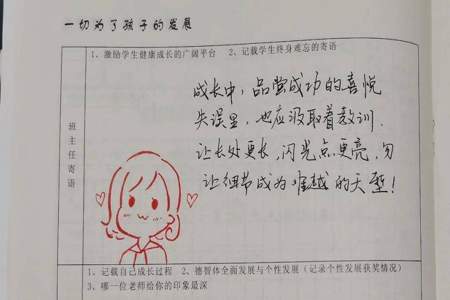 一切为了孩子的发展
1、激励学生健康成长的广阔平台 2、记载学生终身难忘的寄语
班主任寄语
成长中,品尝成功的喜悦
失误里,也应汲取着教训.
让长处更长,闪光点更亮,勿
让细节成为难越的天堑!
1、记载自己成长过程 2、德智体全面发展与个性发展(记录个性发展获奖情况)
3、哪一位老师给你的印象最深